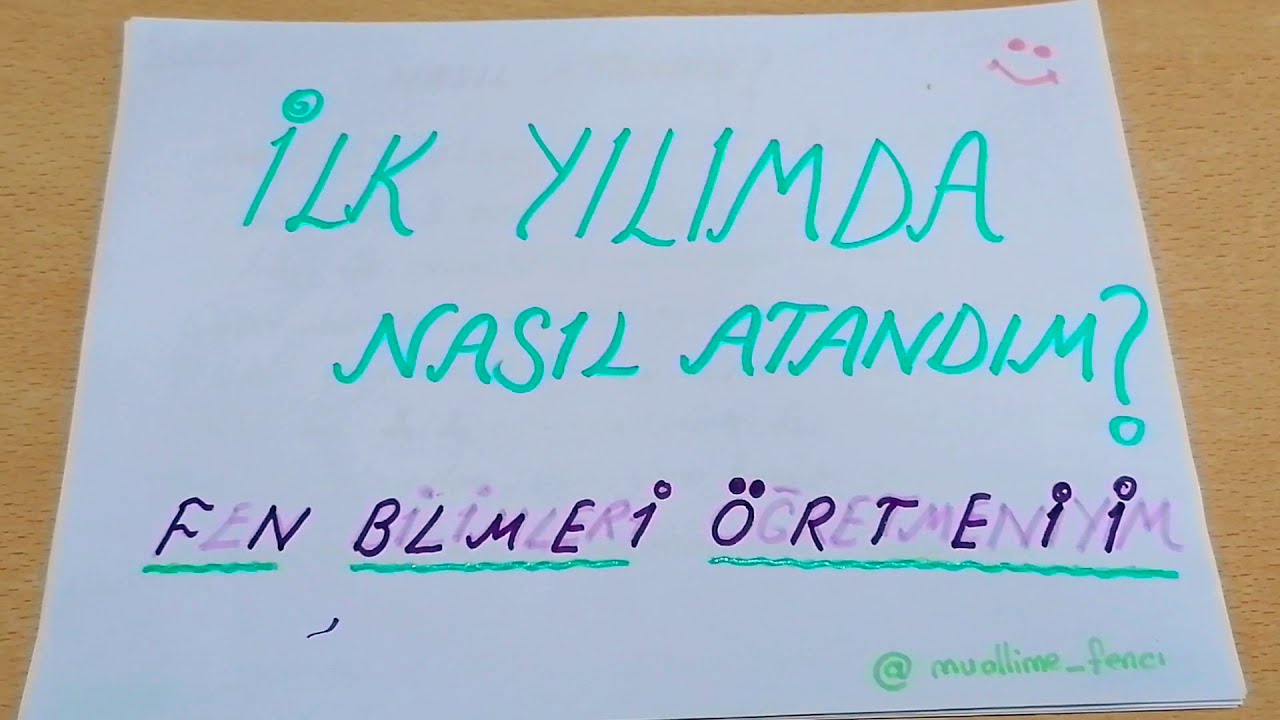 İLK YILIMDA
NASIL ATANDIM?
FEN BİLİMLERİ ÖĞRETMENİYİM
@muallime_fenci